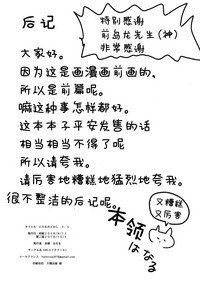 后记
特别感谢
前岛龙先生(神)
非常感谢
大家好。
因为这是画漫画前画的，
所以是前篇呢。
嘛这种事怎样都好。
这本本子平安发售的话
相当相当不得了呢
所以请夸我。
请厉害地糟糕地猛烈地夸我。
很不整洁的后记呢。
又糟糕
又厉害
本领
はなる